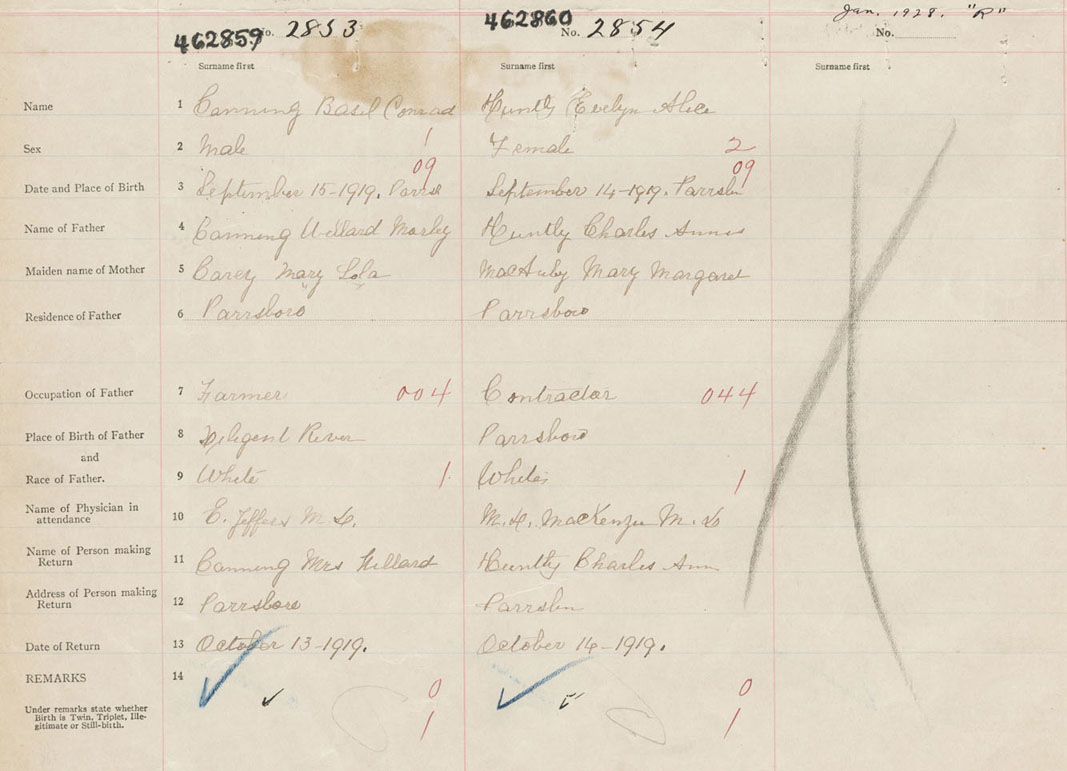 Jan. 1928. "R"
462859 No. 2853 462860 No. 2854 No.
Surname first Surname first Surname first
Name 1 Canning Basil Conrad Huntly Evelyn Alice
Sex 2 Male 1 Female 2
09 09
Date and Place of Birth 3 September 15-1919. Parrs September 14-1919. Parrsb
Name of Father 4 Canning Willard Morley Huntly Charles
Maiden name of Mother 5 Carey Mary Lola Mary Margaret
Residence of Father 6 Parrsboro Parrsboro
Occupation of Father 7 Farmer 004 Contractor 044
Place of Birth of Father 8 Diligent River Parrsboro
and
Race of Father. 9 White 1 White 1
Name of Physician in
attendance 10 E. Jeffers M.D. MacKenzie M.D
Name of Person making
Return 11 Canning Mrs Willard Huntly Charles
Address of Person making
Return 12 Parrsboro Parrsb
Date of Return 13 October 13-1919. October 14-1919.
REMARKS 14
0 0
Under remarks state whether
Birth is Twin, Triplet, Ille-
gitimate or Still-birth.
1 1